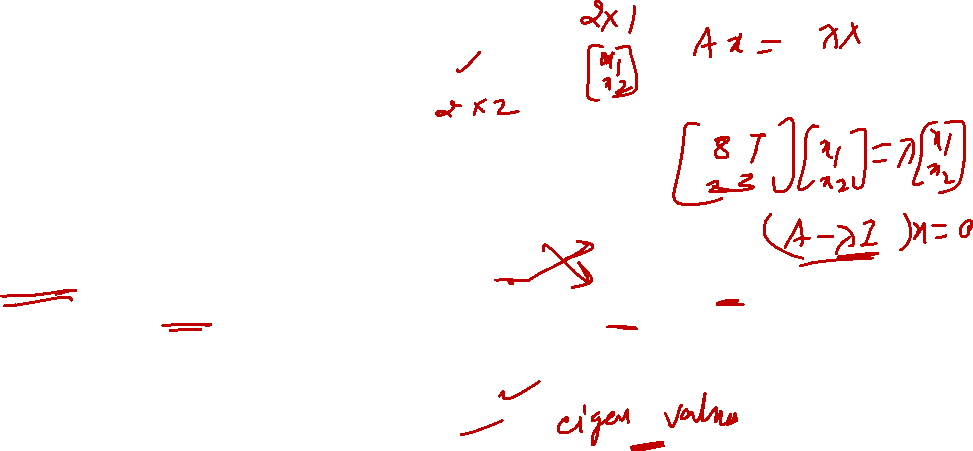 2×1
[x1 x2]
Ax = λX
2×2
[8 7 2 3] [x1 x2] = λ [x1 x2]
(A-λI)x=0
eigen value